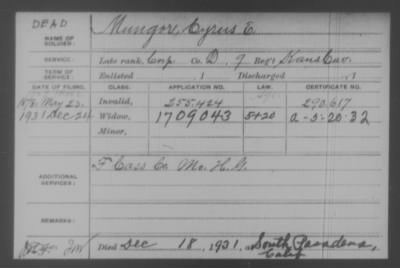 DEAD
NAME OF SOLDIER: Mungore, Cyrus E.
SERVICE: Late rank, Corp Co. D, 9 Reg't Kans Cav.
TERM OF SERVICE: Enlisted , 1 Discharged , 1
DATE OF FILING. CLASS. APPLICATION NO. LAW. CERTIFICATE NO.
1878 May 23. Invalid, 255.424 290.617
1931 Dec 24 Widow, 1709043 5420 a-3-20-32
Minor,
ADDITIONAL SERVICES: F Cass Co Mo. H. G.
REMARKS:
Died Dec 18, 1931, at South Pasadena,
Calif